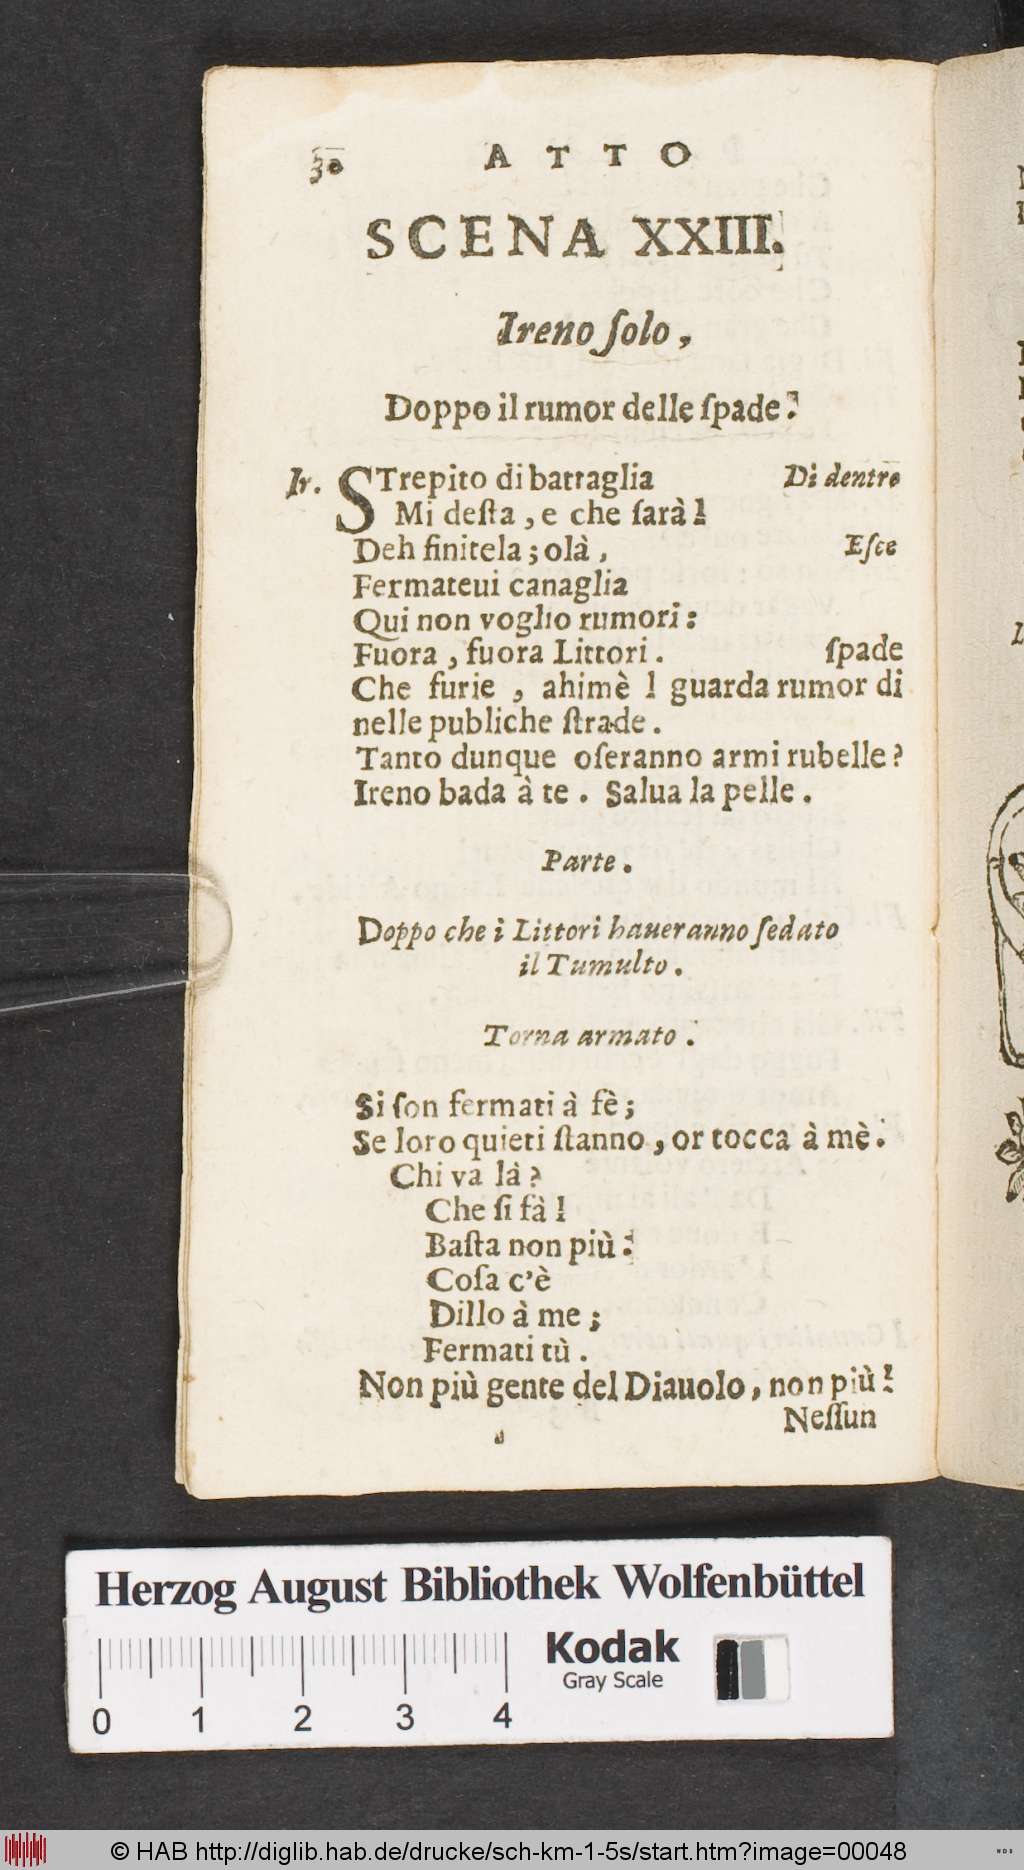 30 ATTO
SCENA XXIII.
Ireno ſolo,
Doppo il rumor delle ſpade.
Ir. STrepito di battaglia Di dentro
Mi deſta, e che ſarà!
Deh finitela; olà, Eſce
Fermateui canaglia
Qui non voglio rumori:
Fuora, fuora Littori. ſpade
Che furie, ahimè! guarda rumor di
nelle publiche ſtrade.
Tanto dunque oſeranno armi rubelle?
Ireno bada à te. Salua la pelle.
Parte.
Doppo che i Littori haueranno ſedato
il Tumulto.
Torna armato.
Si ſon fermati à fè;
Se loro quieti ſtanno, or tocca à mè.
Chi va là?
Che ſi fà!
Baſta non più:
Coſa c'è
Dillo à me;
Fermati tù.
Non più gente del Diauolo, non più!
Neſſun
Herzog August Bibliothek Wolfenbüttel
Kodak
Gray Scale
0 1 2 3 4
© HAB http://diglib.hab.de/drucke/sch-km-1-5s/start.htm?image=00048